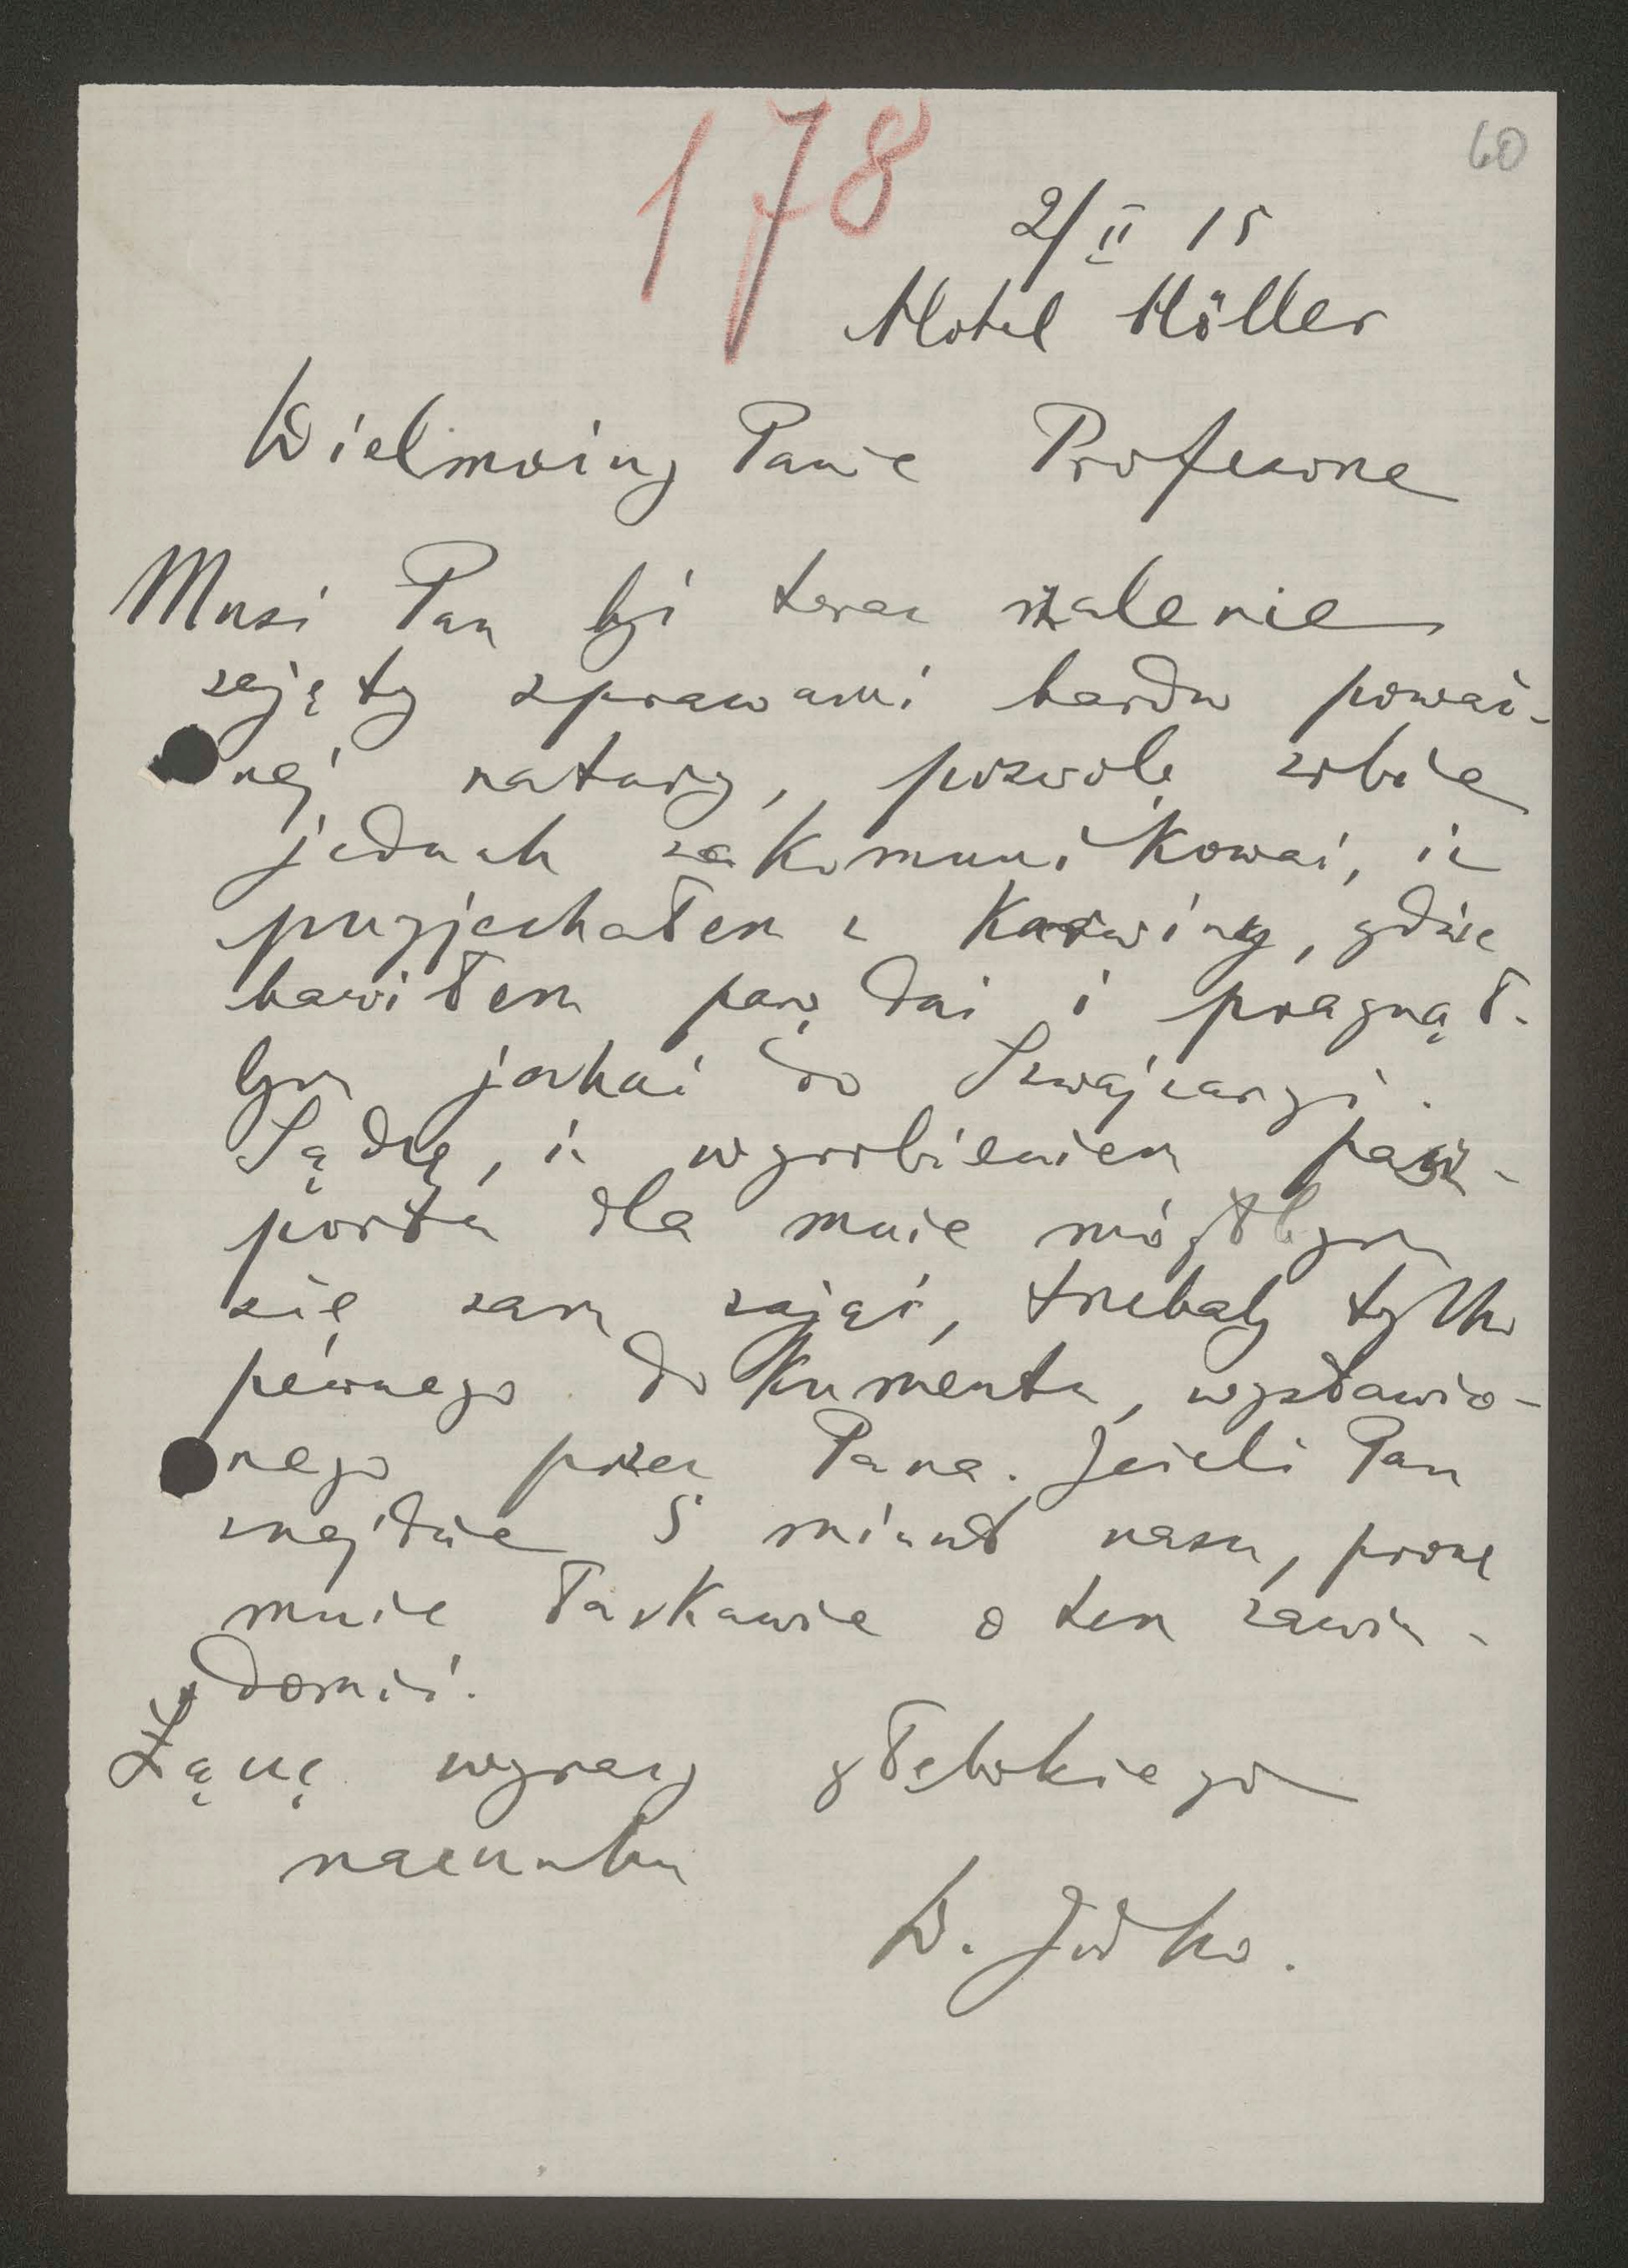 178
60
2/II 15
Hotel Höller
Wielmożny Panie Profesorze
Musi Pan być teraz szalenie
zajęty sprawami bardzo poważ-
nej natury, pozwolę sobie
jednak zakomunikować, iż
przyjechałem z Karwiny, gdzie
bawiłem parę dni i pragnął-
bym jechać do Szwajcaryi.
Sądzę, iż wyrobieniem pasz-
portu dla mnie mógłbym
się sam zająć, trzebaby tylko
pewnego dokumentu, wystawio-
nego przez Pana. Jeżeli Pan
znajdzie 5 minut czasu, proszę
mnie łaskawie o tem zawia-
domić.
Łączę wyrazy głębokiego
szacunku
W. Jodko.